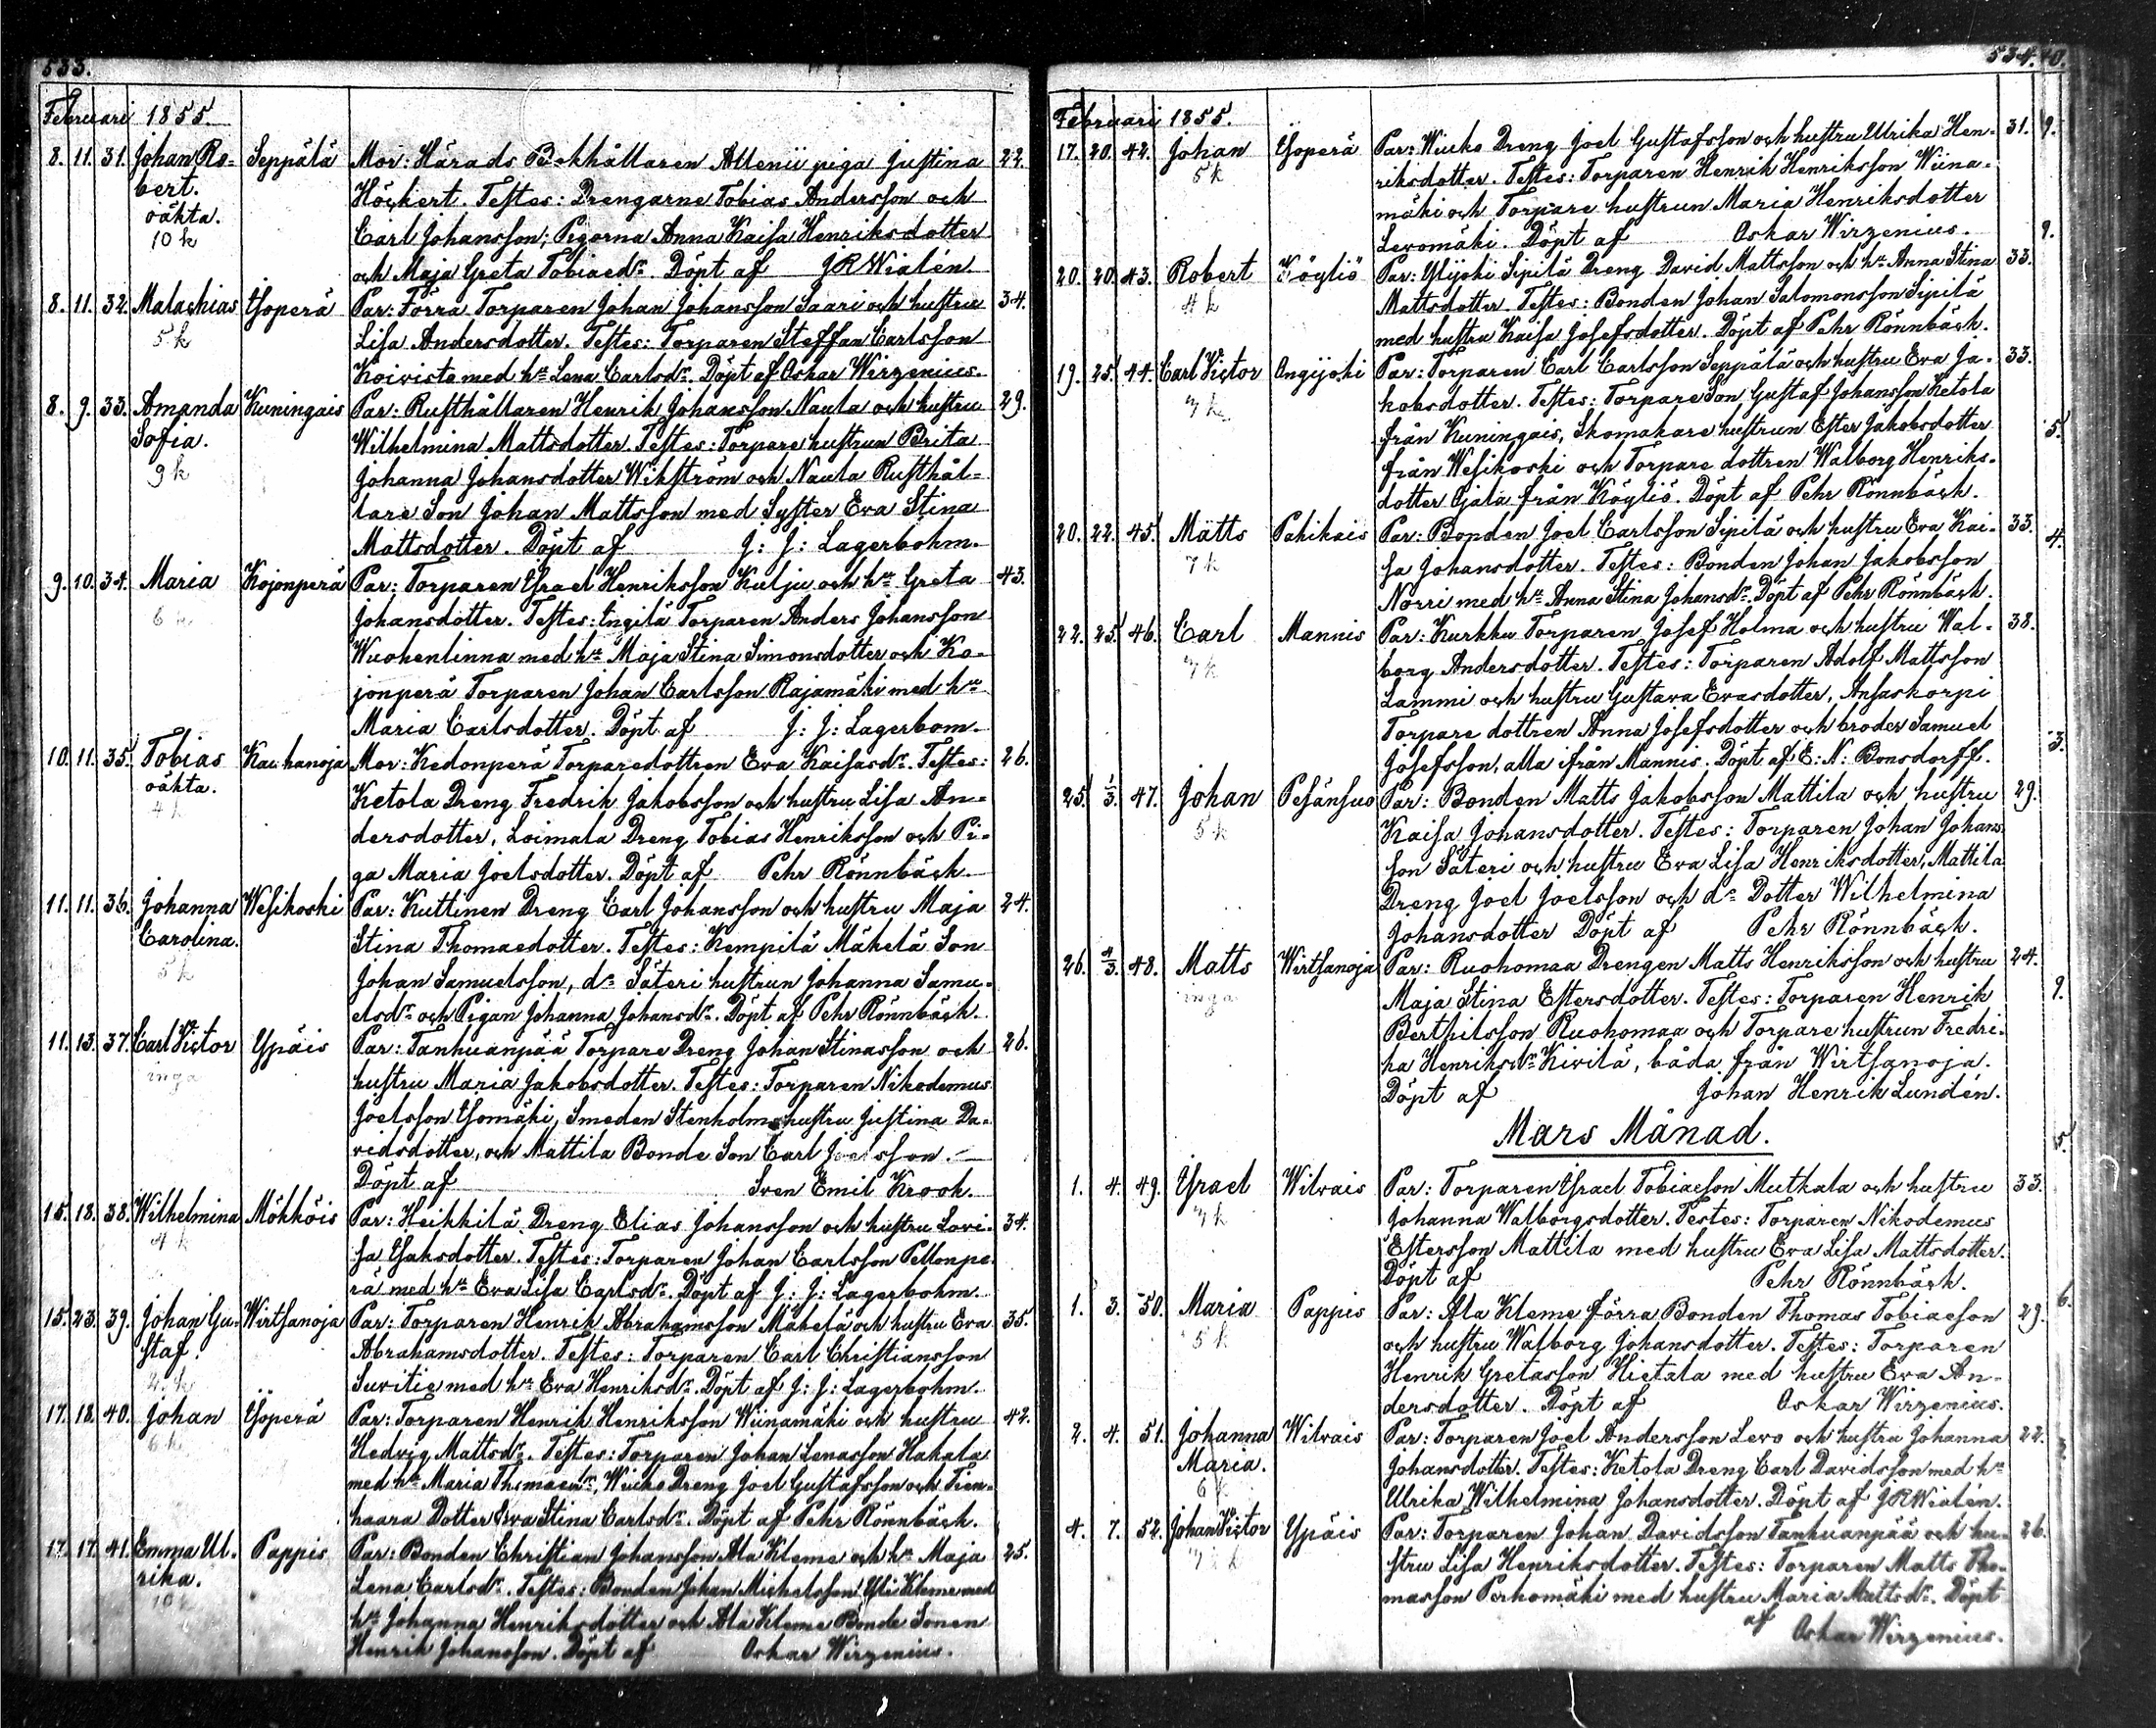 533.
Februari 1855.
8. 11. 31. Johan Ro- Seppälä Mor: Härads Bokhållaren Allenii piga Justina 22.
bert. Höckert. Testes: Drengarne Tobias Andersson och
oäkta. Carl Johansson; Pigorna Anna Kaisa Henriksdotter
10 k och Maja Greta Tobiaedr. Döpt af J R Wialén.
8. 11. 32. Malachias Ysoperä Par: Förra Torparen Johan Johansson Saari och hustru 34.
5 k Lisa Andersdotter. Testes: Torparen Steffan Carlsson
Koivisto med hu Lena Carlsdr. Döpt af Oskar Wirzenius.
8. 9. 33. Amanda Kuningais Par: Rusthållaren Henrik Johansson Naula och hustru 29.
Sofia. Wilhelmina Mattsdotter. Testes: Torpare hustrun Brita
9 k Johanna Johansdotter Wikström och Naula Rusthål-
lare Son Johan Mattsson med Syster Eva Stina
Mattsdotter. Döpt af J: J: Lagerbohm.
9. 10. 34. Maria Kojonperä Par: Torparen Ysrael Henriksson Kulju och hu Greta 43.
6 k Johansdotter. Testes: Ingilä Torparen Anders Johansson
Wuohenlinna med hu Maja Stina Simonsdotter och Ko-
jonperä Torparen Johan Carlsson Rajamäki med hu
Maria Carlsdotter. Döpt af J: J: Lagerbom.
10. 11. 35. Tobias Kauhanoja Mor: Kedonperä Torparedottren Eva Kaisasdr. Testes: 26.
oäkta. Ketola Dreng Fredrik Jakobsson och hustru Lisa An-
4 k dersdotter, Loimala Dreng Tobias Henriksson och Pi-
ga Maria Joelsdotter. Döpt af Pehr Rönnbäck.
11. 11. 36. Johanna Wesikoski Par: Kuttinen Dreng Carl Johansson och hustru Maja 24.
Carolina. Stina Thomaedotter. Testes: Kempilä Mäkelä Son
5 k Johan Samuelsson, do Säteri hustrun Johanna Samu-
elsdr och Pigan Johanna Johansdr. Döpt af Pehr Rönnbäck.
11. 13. 37. Carl Victor Ypäis Par: Tanhuanpää Torpare Dreng Johan Stinasson och 26.
inga hustru Maria Jakobsdotter. Testes: Torparen Nikodemus
Joelsson Ysomäki, Smeden Stenholms hustru Justina Da-
vidsdotter, och Mattila Bonde Son Carl Joelsson.
Döpt af Sven Emil Krook.
15. 18. 38. Wilhelmina Mökköis Par: Heikkilä Dreng Elias Johansson och hustru Lovi- 34.
4 k sa Ysaksdotter. Testes: Torparen Johan Carlsson Pellonpe-
rä med hu Eva Lisa Carlsdr. Döpt af J: J: Lagerbohm.
15. 23. 39. Johan Gu- Wirtsanoja Par: Torparen Henrik Abrahamsson Mäkelä och hustru Eva 35.
staf. Abrahamsdotter. Testes: Torparen Carl Christiansson
Suvitie med hu Eva Henriksdr. Döpt af J: J: Lagerbohm.
17. 18. 40. Johan Ysoperä Par: Torparen Henrik Henriksson Wiinamäki och hustru 42.
6 k Hedvig Mattsdr. Testes: Torparen Johan Lenasson Hakala
med hu Maria Thomaedr, Wiuko Dreng Joel Gustafsson och Tien-
haara Dotter Eva Stina Carlsdr. Döpt af Pehr Rönnbäck.
17. 17. 41. Emma Ul- Pappis Par: Bonden Christian Johansson Ala Kleme och hu Maja 25.
rika. Lena Carlsdr. Testes: Bonden Johan Michelsson Yli Kleme med
10 k hu Johanna Henriksdotter och Ala Kleme Bonde Sonen
Henrik Johansson. Döpt af Oskar Wirzenius.
534.
Februari 1855.
17. 20. 42. Johan Ysoperä Par: Wiuko Dreng Joel Gustafsson och hustru Ulrika Hen- 31.
5 k riksdotter. Testes: Torparen Henrik Henriksson Wiina-
mäki och Torpare hustrun Maria Henriksdotter
Levomäki. Döpt af Oskar Wirzenius.
20. 20. 43. Robert Köyliö Par: Ylijoki Sipilä Dreng David Mattsson och hu Anna Stina 33.
4 k Mattsdotter. Testes: Bonden Johan Salomonsson Sipilä
med hustru Kaisa Josefsdotter. Döpt af Pehr Rönnbäck.
19. 25. 44. Carl Victor Ongijoki Par: Torparen Carl Carlsson Seppälä och hustru Eva Ja- 33.
7 k kobsdotter. Testes: Torpare Son Gustaf Johansson Ketola
från Kuningais, Skomakare hustrun Ester Jakobsdotter
från Wesikoski och Torpare dottren Walborg Henriks-
dotter Ojala från Köyliö. Döpt af Pehr Rönnbäck.
20. 22. 45. Matts Pahikais Par: Bonden Joel Carlsson Sipilä och hustru Eva Kai- 33.
7 k sa Johansdotter. Testes: Bonden Johan Jakobsson
Norri med hu Anna Stina Johansdr. Döpt af Pehr Rönnbäck.
22. 25. 46. Carl Mannis Par: Kurkku Torparen Josef Holma och hustru Wal- 38.
7 k borg Andersdotter. Testes: Torparen Adolf Mattsson
Lammi och hustru Gustava Evasdotter, Ansaskorpi
Torpare dottren Anna Josefsdotter och broder Samuel
Josefsson, alla ifrån Mannis. Döpt af E: N: Bonsdorff.
25. 1/3. 47. Johan Pesänsuo Par: Bonden Matts Jakobsson Mattila och hustru 29.
5 k Kaisa Johansdotter. Testes: Torparen Johan Johans-
son Säteri och hustru Eva Lisa Henriksdotter, Mattila
Dreng Joel Joelsson och do Dotter Wilhelmina
Johansdotter Döpt af Pehr Rönnbäck.
26. 4/3. 48. Matts Wirtsanoja Par: Ruohomaa Drengen Matts Henriksson och hustru 24.
inga Maja Stina Estersdotter. Testes: Torparen Henrik
Berthilsson Ruohomaa och Torpare hustrun Fredri-
ka Henriksdr Kivilä, båda från Wirtsanoja.
Döpt af Johan Henrik Lundén.
Mars Månad.
1. 4. 49. Ysrael Wilvais Par: Torparen Ysrael Tobiaeson Mutkala och hustru 33.
7 k Johanna Walborgsdotter. Testes: Torparen Nikodemus
Estersson Mattila med hustru Eva Lisa Mattsdotter.
Döpt af Pehr Rönnbäck.
1. 3. 50. Maria Pappis Par: Ala Kleme förra Bonden Thomas Tobiaeson 29.
5 k och hustru Walborg Johansdotter. Testes: Torparen
Henrik Gretasson Hietala med hustru Eva An-
dersdotter. Döpt af Oskar Wirzenius.
2. 4. 51. Johanna Wilvais Par: Torparen Joel Andersson Levo och hustru Johanna 22.
Maria. Johansdotter. Testes: Ketola Dreng Carl Davidsson med hu
6 k Ulrika Wilhelmina Johansdotter. Döpt af J R Wialén.
4. 7. 52. Johan Victor Ypäis Par: Torparen Johan Davidsson Tanhuanpää och hu- 26.
stru Lisa Henriksdotter. Testes: Torparen Matts Tho-
masson Perhomäki med hustru Maria Mattsdr. Döpt
af Oskar Wirzenius.